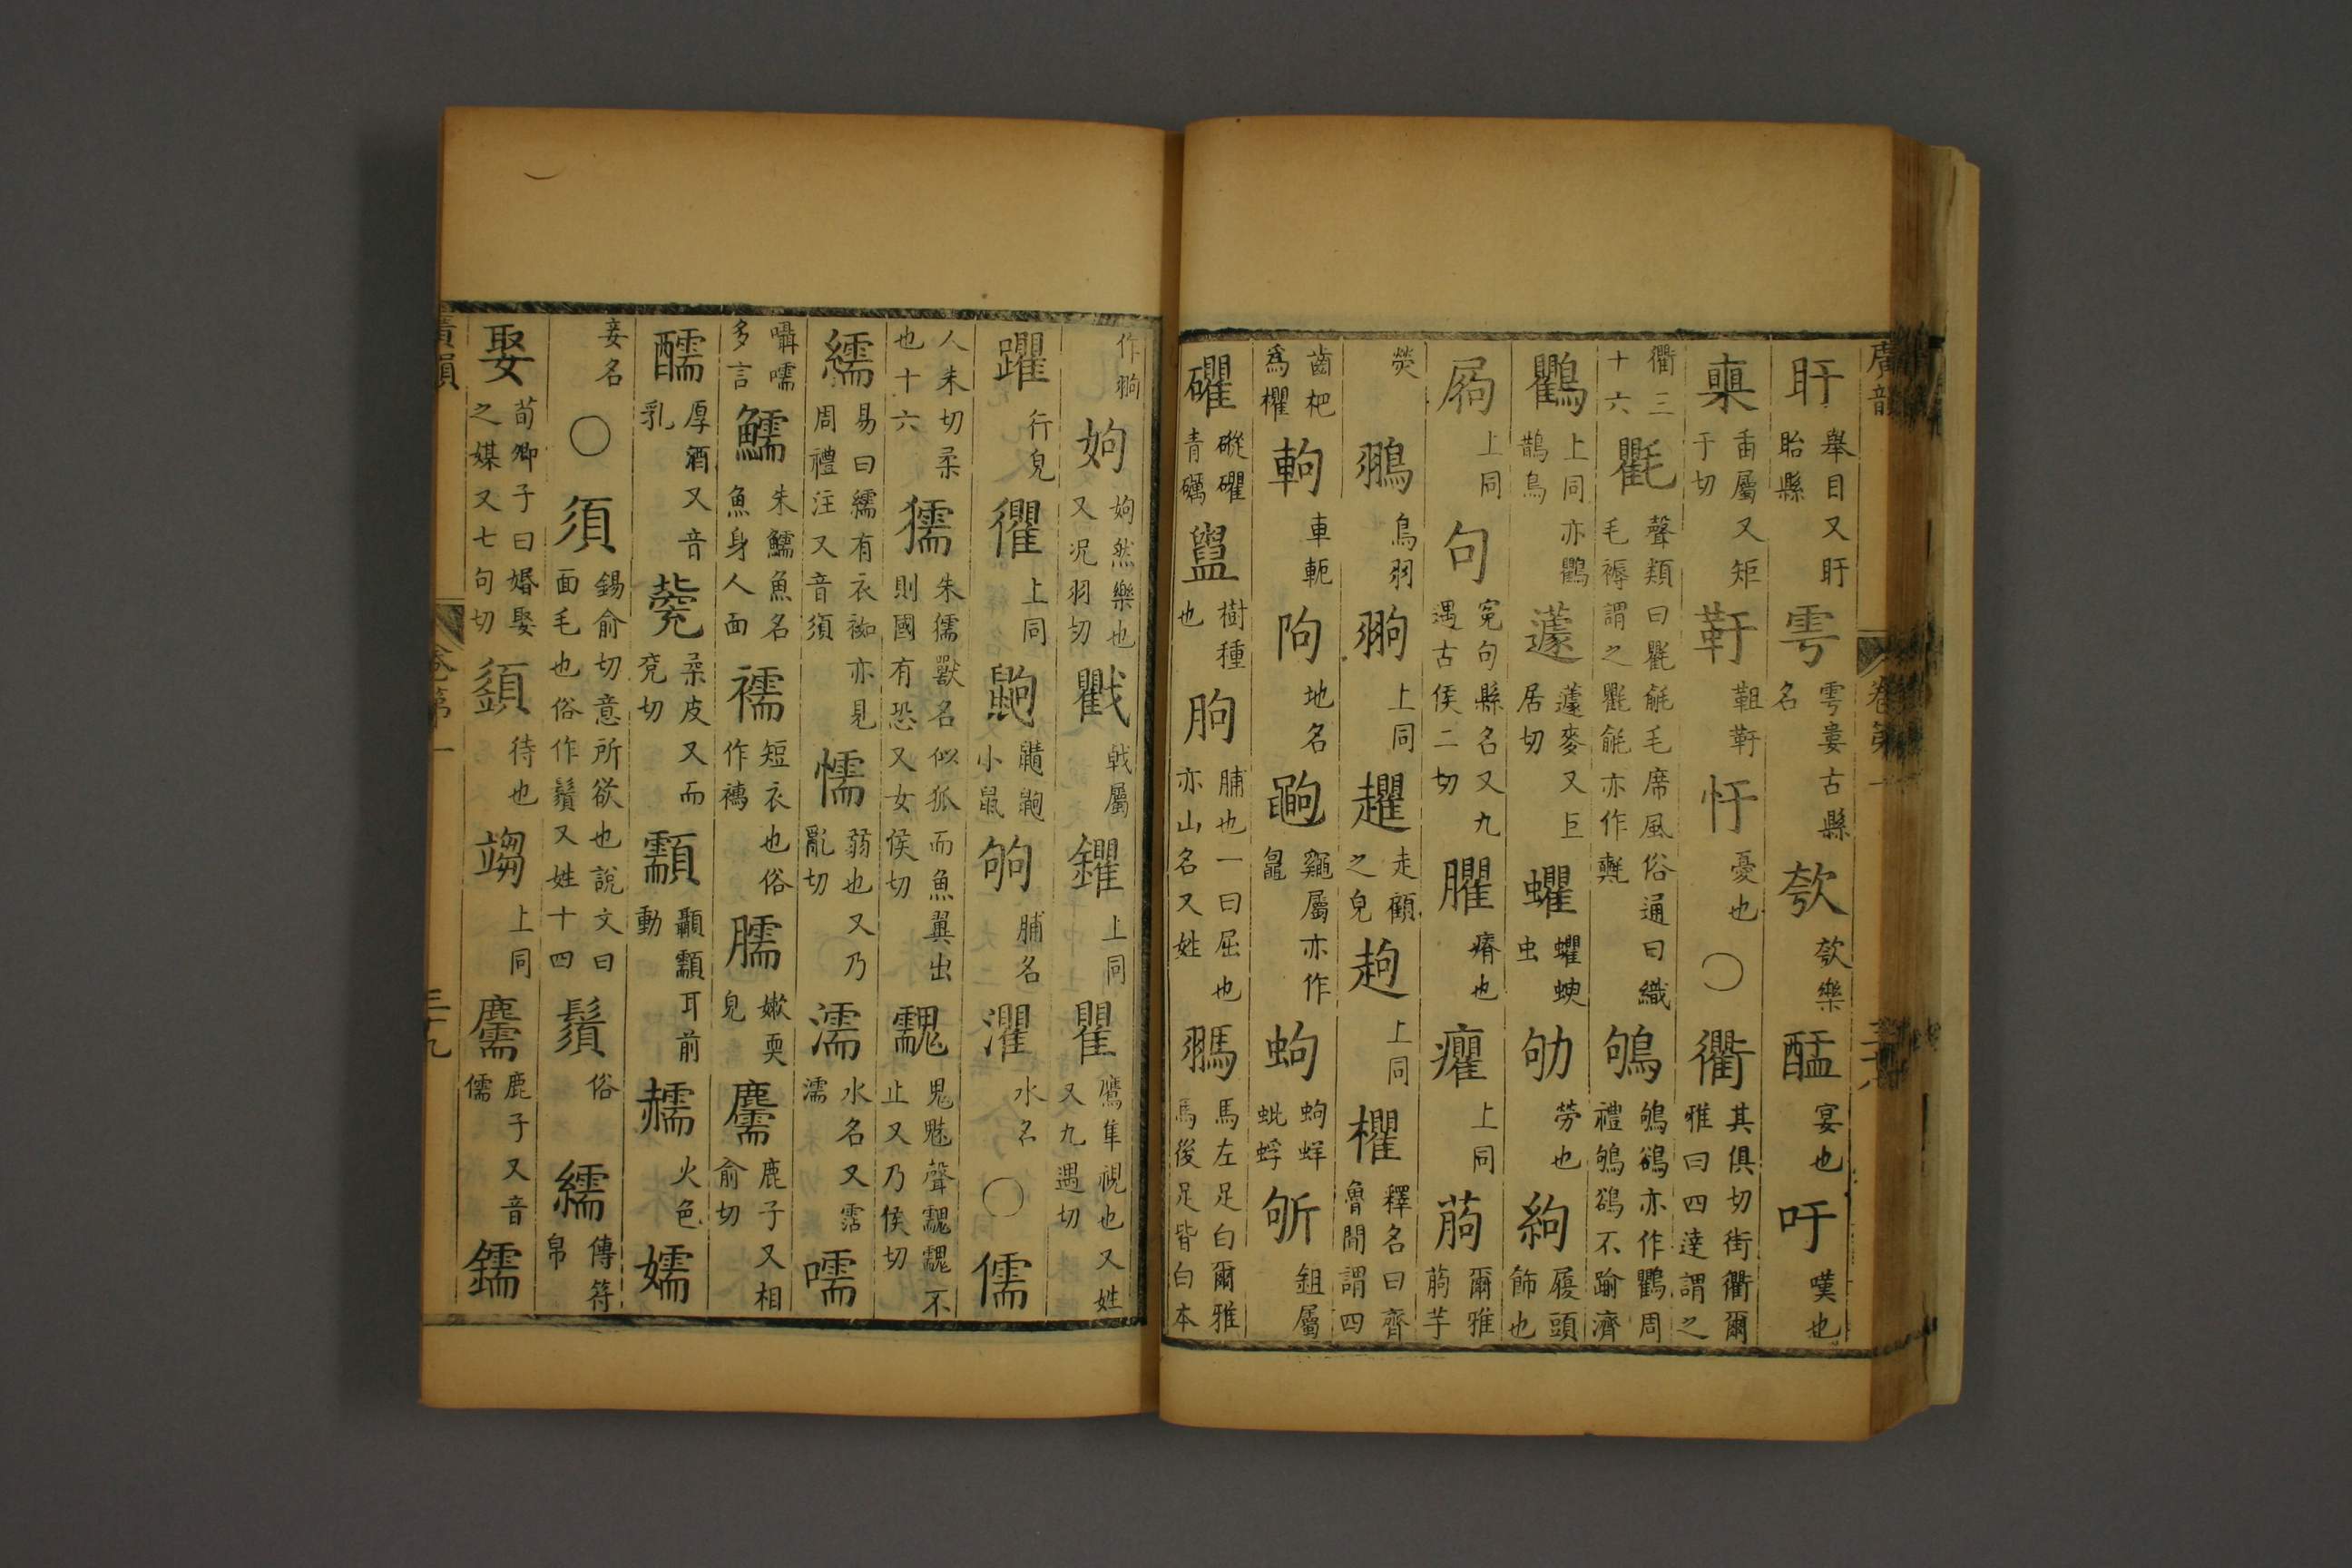 廣韻 卷第一 三十八
盱舉目又盱眙縣 雩雩婁古縣名 欨欨樂 䣿宴也 吁嘆也
㮛臿屬又矩于切 䩒靻䩒 忓憂也 ○衢其俱切街衢爾雅曰四達謂之
衢三十六 氍聲類曰氍毹毛席風俗通曰織毛褥謂之氍毹亦作㲘 鴝鴝鵒亦作鸜周禮鴝鵒不踰濟
鸜上同亦鸜鵲鳥 蘧蘧麥又巨居切 蠷蠷螋虫 劬勞也 絇履頭飾也
㞘上同 句寃句縣名又九遇古侯二切 臞瘠也 癯上同 蒟爾雅蒟芋
熒 鸜鳥羽 翑上同 趯走顧之皃 䞤上同 欋釋名曰齊魯間謂四
齒杷爲欋 軥車軛 岣地名 鼩龜屬亦作鼂 蚼蚼蛘蚍蜉 斪鉏屬
礭礛礭青礪 䀠樹種也 朐脯也一曰屈也亦山名又姓 馵馬左足白爾雅馬後足皆白本
作翑 姁姁然樂也又况羽切 戵戟屬 鑺上同 瞿鷹隼視也又九遇切又姓
躣行皃 忂上同 鼩鼱鼩小鼠 朐脯名 灈水名 ○儒
人朱切柔也十六 獳朱獳獸名似狐而魚翼出則國有恐又女侯切 䰰鬼魅聲䰰䰰不止又乃侯切
繻易曰繻有衣袽亦見周禮注又音須 懦弱也又乃亂切 濡水名又霑濡 嚅
囁嚅多言 鱬朱鱬魚名魚身人面 襦短衣也俗作䙔 臑嫰耎皃 麢鹿子又相俞切
醹厚酒又音乳 㼱柔皮又而兖切 顬顳顬耳前動 燸火色 嬬
妾名 ○須錫俞切意所欲也說文曰面毛也俗作鬚又姓十四 鬚俗 繻傳符帛
娶荀卿子曰婚娶之媒又七句切 䇓待也 㑳上同 麢鹿子又音儒 鑐
廣韻 卷第一 三十九